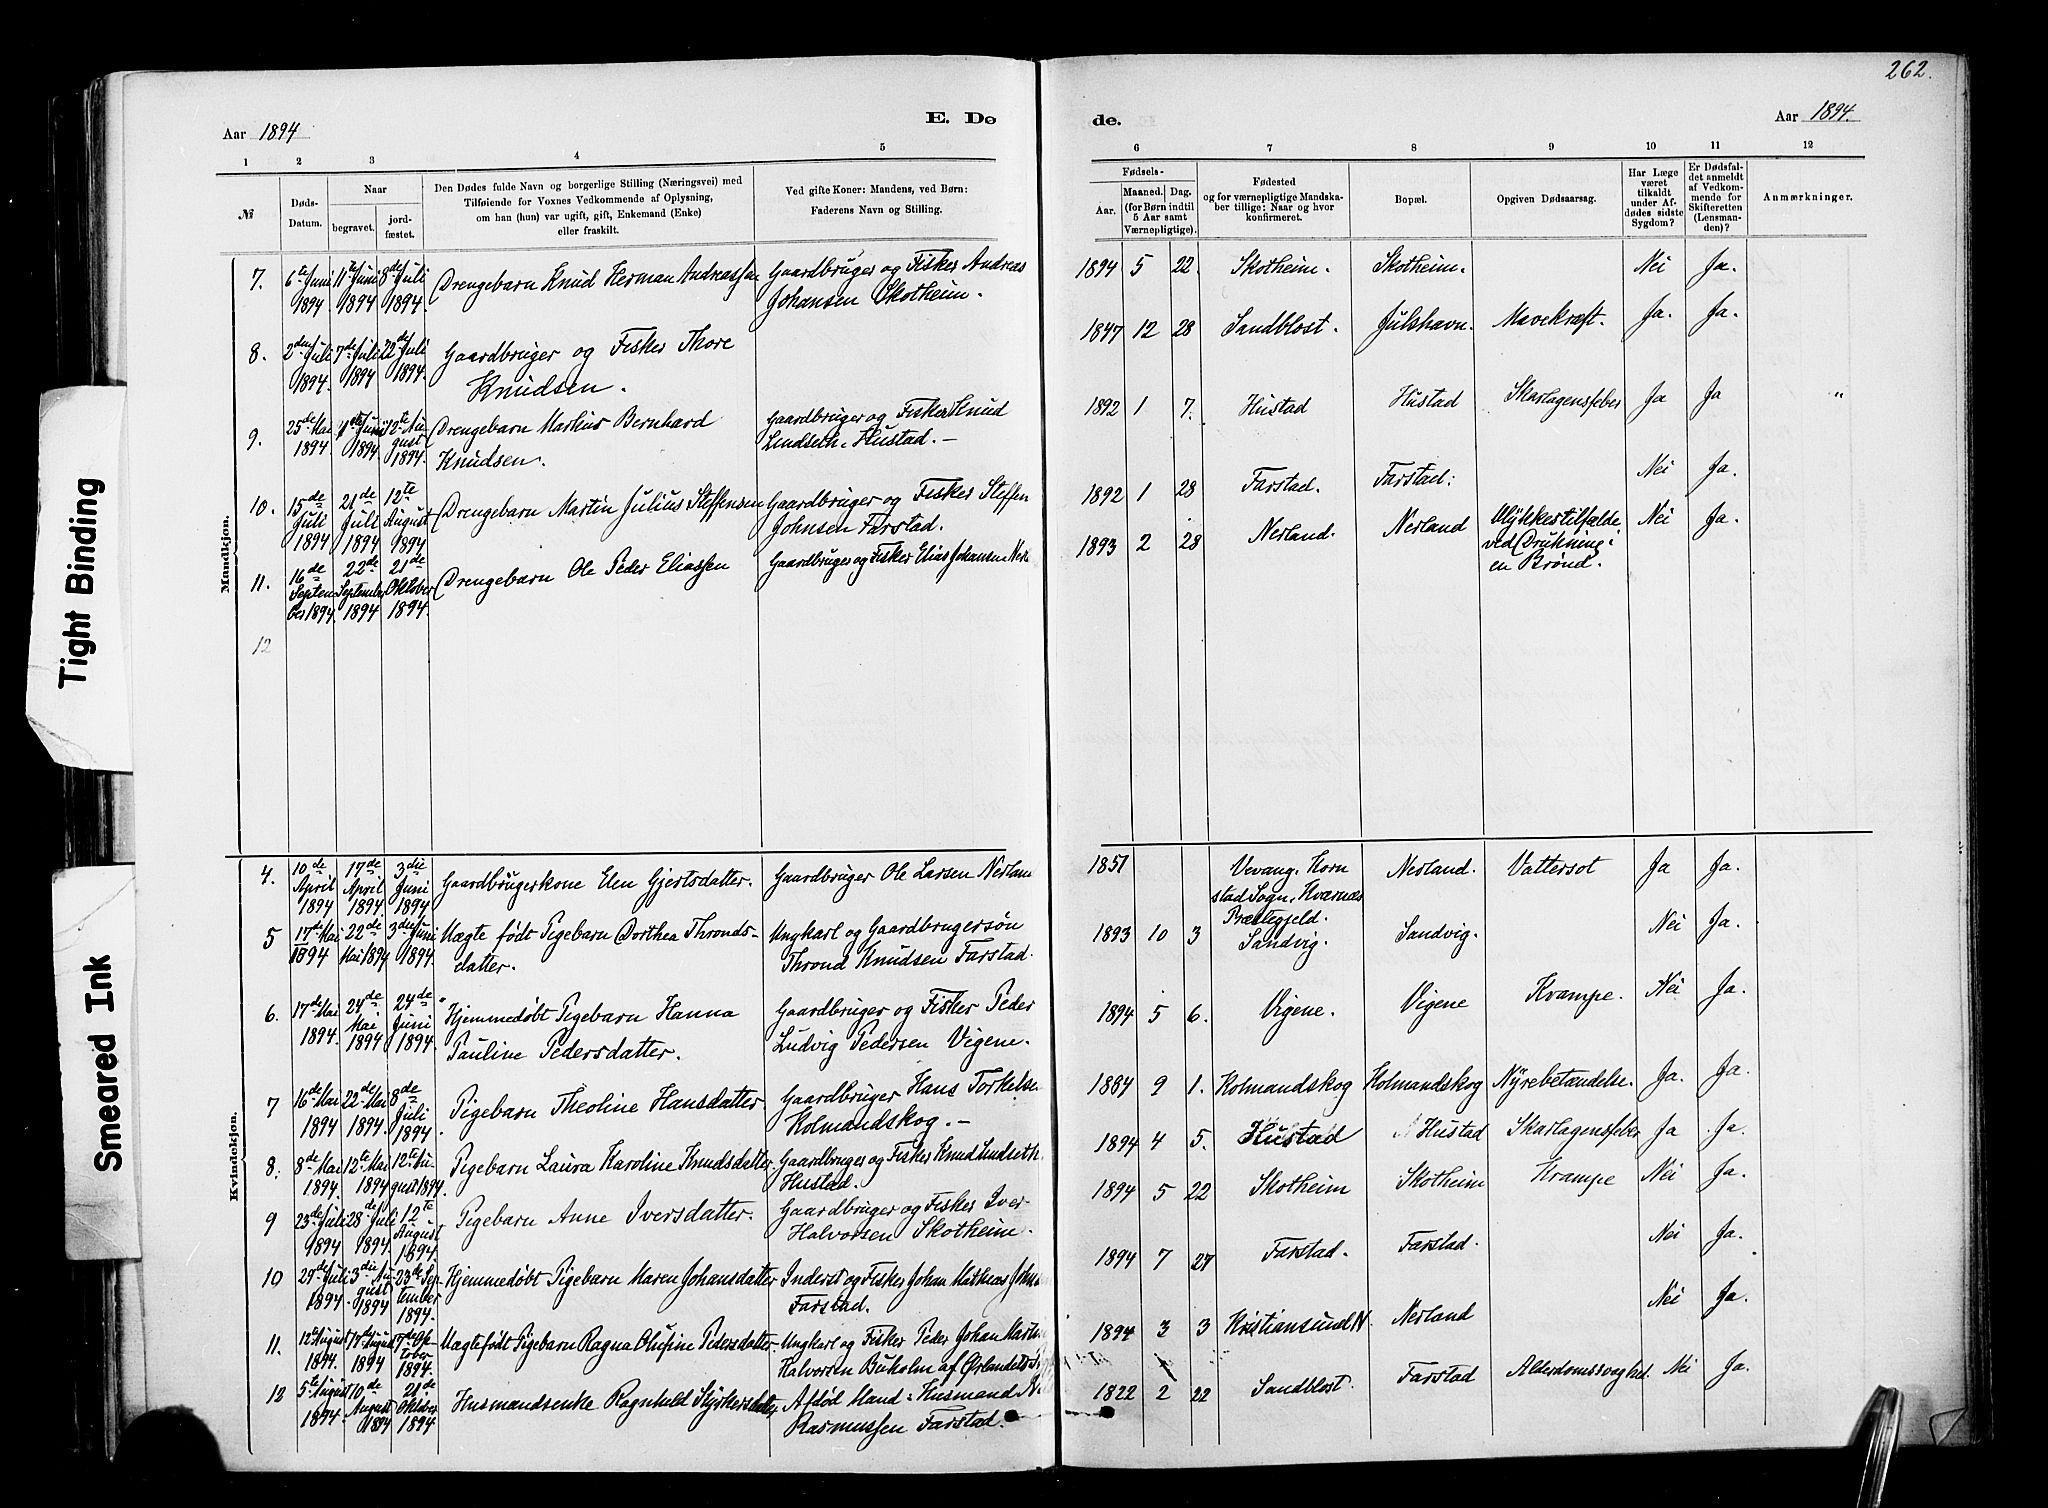 262.
Aar 1894
E. Dø
de.
Aar 1894.
1 2 3 4 5
6 7 8 9 10 11 12
№
Døds-
Datum.
Naar
begravet.
jord-
fæstet.
Den Dødes fulde Navn og borgerlige Stilling (Næringsvei) med
Tilføiende for Voxnes Vedkommende af Oplysning,
om han (hun) var ugift, gift, Enkemand (Enke)
eller fraskilt.
Ved gifte Koner: Mandens, ved Børn:
Faderens Navn og Stilling.
Fødsels-
Aar.
Maaned. Dag.
(for Børn indtil
5 Aar samt
Værnepligtige).
Fødested
og for værnepligtige Mandska-
ber tillige: Naar og hvor
konfirmeret.
Bopæl.
Opgiven Dødsaarsag.
Har Læge
været
tilkaldt
under Af-
dødes sidste
Sygdom?
Er Dødsfal-
det anmeldt
af Vedkom-
mende for
Skifteretten
(Lensman-
den)?
Anmærkninger.
Tight Binding
Smeared Ink
Mandkjøn.
7. 6te Juni 11te Juni 8de Juli Drengebarn Knud Herman Andreassen Gaardbruger og Fisker Andreas 1894 5 22. Skotheim. Skotheim. Nei Ja.
1894 1894 1894. Johansen Skotheim.
8. 2den Juli 7de Juli 22de Juli Gaardbruger og Fisker Thore 1847 12 28 Sandblost. Julshavn. Mavekræft. Ja. Ja.
1894. 1894 1894. Knudsen.
9. 25de Mai Juni 12te Au- Drengebarn Markus Bernhard Gaardbruger og Fisker Knud 1892 1 7. Hustad Hustad Skarlagensfeber Ja Ja "
1894 1894 gust Knudsen. Lindseth Hustad. —
1894.
10. 15de 21de 12te Drengebarn Martin Julius Steffensen Gaardbruger og Fisker Steffen 1892 1 28 Farstad. Farstad. Nei Ja.
Juli Juli August Johnsen Farstad.
1894 1894 1894
11. 16de 22de 21de Drengebarn Ole Peder Eliassen Gaardbruger og Fisker Elias Johansen 1893 2 28 Nerland. Nerland Ulykkestilfælde Nei Ja.
Septem- September Oktober ved Drukning i
ber 1894 1894 1894. en Brønd.
12
Kvindekjøn.
4. 10de 17de 3die Gaardbrugerkone Elen Gjertsdatter. Gaardbruger Ole Larsen Nerlan 1851 Vevang. Korn Nerland. Vattersot Ja Ja.
April April Juni stad Sogn, Kværnes
1894 1894. 1894 Præstegjeld.
5 17de Mai 22de 3die Juni Uægte født Pigebarn Dorthea Thronds- Ungkarl og Gaardbrugersøn 1893 10 3 Sandvig. Sandvig. Nei Ja.
1894 Mai 1894 1894. datter. Thrond Knudsen Farstad.
6. 17de Mai 24de 24de Hjemmedøbt Pigebarn Hanna Gaardbruger og Fisker Peder 1894 5 6. Vigene. Vigene Krampe. Nei Ja.
1894. Mai Juni Pauline Pedersdatter. Ludvig Pedersen Vigene.
1894 1894.
7 16de Mai 22de Mai 8de Pigebarn Theoline Hansdatter. Gaardbruger Hans Torkelse 1884 9 1. Kolmandskog Kolmandskog Nyrebetændelse. Ja. Ja.
1894 1894. Juli Kolmandskog. —
1894.
8. 8de Mai 12te Mai 12te Au- Pigebarn Laura Karoline Knudsdatter. Gaardbruger og Fisker Knud Lindseth 1894 4 5. Hustad Hustad Skarlagensfeber Ja Ja.
1894. 1894 gust 1894. Hustad.
9 23de Juli 28de Juli 12te Pigebarn Anne Iversdatter. Gaardbruger og Fisker Iver 1894 5 22 Skotheim Skotheim Krampe Nei Ja.
1894 1894. August Halvorsen Skotheim.
1894.
10 29de Juli 3die Au- 23de Sep- Hjemmedøbt Pigebarn Maren Johansdatter Inderst og Fisker Johan Mathias 1894 7 27 Farstad. Farstad. Nei Ja.
1894. gust tember Farstad.
1894 1894.
11. 12te August 17de August 17de Ok- Uægte født Pigebarn Ragna Olufine Pedersdatter Ungkarl og Fisker Peder Johan 1894 3 3 Kristiansund N. Nerland Nei Ja.
1894. 1894 tober Halvorsen Buholm af Ørlandets
1894.
12 5te August 10de 21de Husmandsenke Ragnhild Styrkersdatter Afdød Mand: Husmand 1822 2 22 Sandblost. Farstad Alderdomssvaghed. Nei Ja.
1894. August Oktober Rasmussen Farstad.
1894 1894